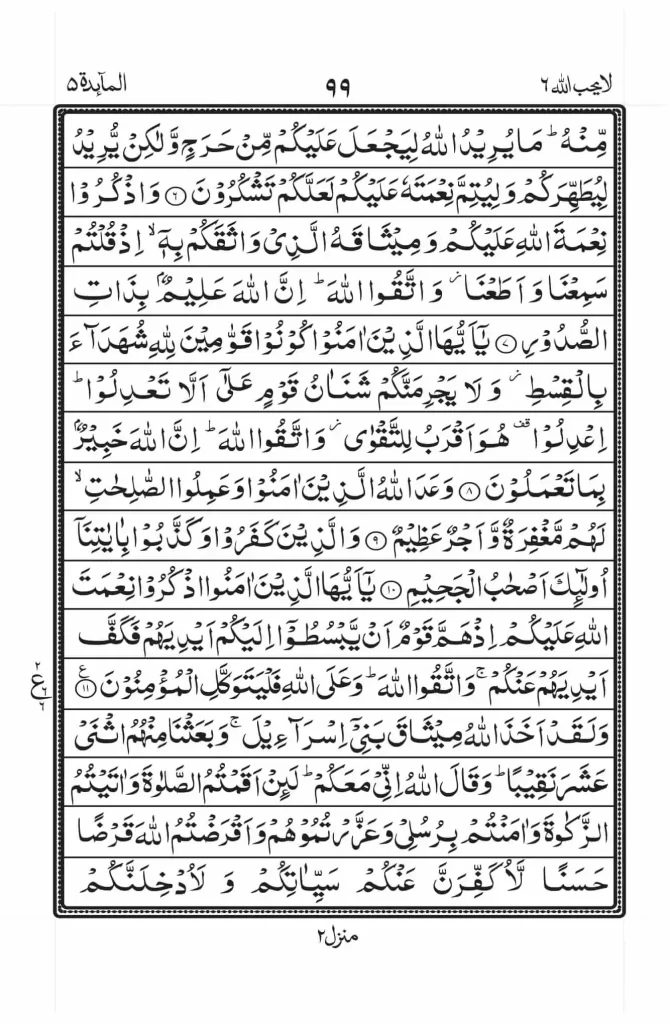 لا یحب اللہ ۶ ۹۹ المآىِٕدة ۵
مِّنْهُ ؕ مَا یُرِیْدُ اللّٰهُ لِیَجْعَلَ عَلَیْكُمْ مِّنْ حَرَجٍ وَّلٰكِنْ یُّرِیْدُ
لِیُطَهِّرَكُمْ وَ لِیُتِمَّ نِعْمَتَهٗ عَلَیْكُمْ لَعَلَّكُمْ تَشْكُرُوْنَ ۶ وَ اذْكُرُوْا
نِعْمَةَ اللّٰهِ عَلَیْكُمْ وَ مِیْثَاقَهُ الَّذِیْ وَاثَقَكُمْ بِهٖۤ ۙ اِذْ قُلْتُمْ
سَمِعْنَا وَ اَطَعْنَا ؗ وَ اتَّقُوا اللّٰهَ ؕ اِنَّ اللّٰهَ عَلِیْمٌۢ بِذَاتِ
الصُّدُوْرِ ۷ یٰۤاَیُّهَا الَّذِیْنَ اٰمَنُوْا كُوْنُوْا قَوّٰمِیْنَ لِلّٰهِ شُهَدَآءَ
بِالْقِسْطِ ؗ وَ لَا یَجْرِمَنَّكُمْ شَنَاٰنُ قَوْمٍ عَلٰۤی اَلَّا تَعْدِلُوْا ؕ
اِعْدِلُوْا قف هُوَ اَقْرَبُ لِلتَّقْوٰی ؗ وَ اتَّقُوا اللّٰهَ ؕ اِنَّ اللّٰهَ خَبِیْرٌۢ
بِمَا تَعْمَلُوْنَ ۸ وَعَدَ اللّٰهُ الَّذِیْنَ اٰمَنُوْا وَ عَمِلُوا الصّٰلِحٰتِ ۙ
لَهُمْ مَّغْفِرَةٌ وَّ اَجْرٌ عَظِیْمٌ ۹ وَ الَّذِیْنَ كَفَرُوْا وَ كَذَّبُوْا بِاٰیٰتِنَاۤ
اُولٰٓىِٕكَ اَصْحٰبُ الْجَحِیْمِ ۱۰ یٰۤاَیُّهَا الَّذِیْنَ اٰمَنُوا اذْكُرُوْا نِعْمَتَ
اللّٰهِ عَلَیْكُمْ اِذْ هَمَّ قَوْمٌ اَنْ یَّبْسُطُوْۤا اِلَیْكُمْ اَیْدِیَهُمْ فَكَفَّ
اَیْدِیَهُمْ عَنْكُمْ ۚ وَ اتَّقُوا اللّٰهَ ؕ وَ عَلَی اللّٰهِ فَلْیَتَوَكَّلِ الْمُؤْمِنُوْنَ ۱۱ ع
۲ ع ۶ ۶
وَ لَقَدْ اَخَذَ اللّٰهُ مِیْثَاقَ بَنِیْۤ اِسْرَآءِیْلَ ۚ وَ بَعَثْنَا مِنْهُمُ اثْنَیْ
عَشَرَ نَقِیْبًا ؕ وَ قَالَ اللّٰهُ اِنِّیْ مَعَكُمْ ؕ لَىِٕنْ اَقَمْتُمُ الصَّلٰوةَ وَ اٰتَیْتُمُ
الزَّكٰوةَ وَ اٰمَنْتُمْ بِرُسُلِیْ وَ عَزَّرْتُمُوْهُمْ وَ اَقْرَضْتُمُ اللّٰهَ قَرْضًا
حَسَنًا لَّاُكَفِّرَنَّ عَنْكُمْ سَیِّاٰتِكُمْ وَ لَاُدْخِلَنَّكُمْ
منزل ۲